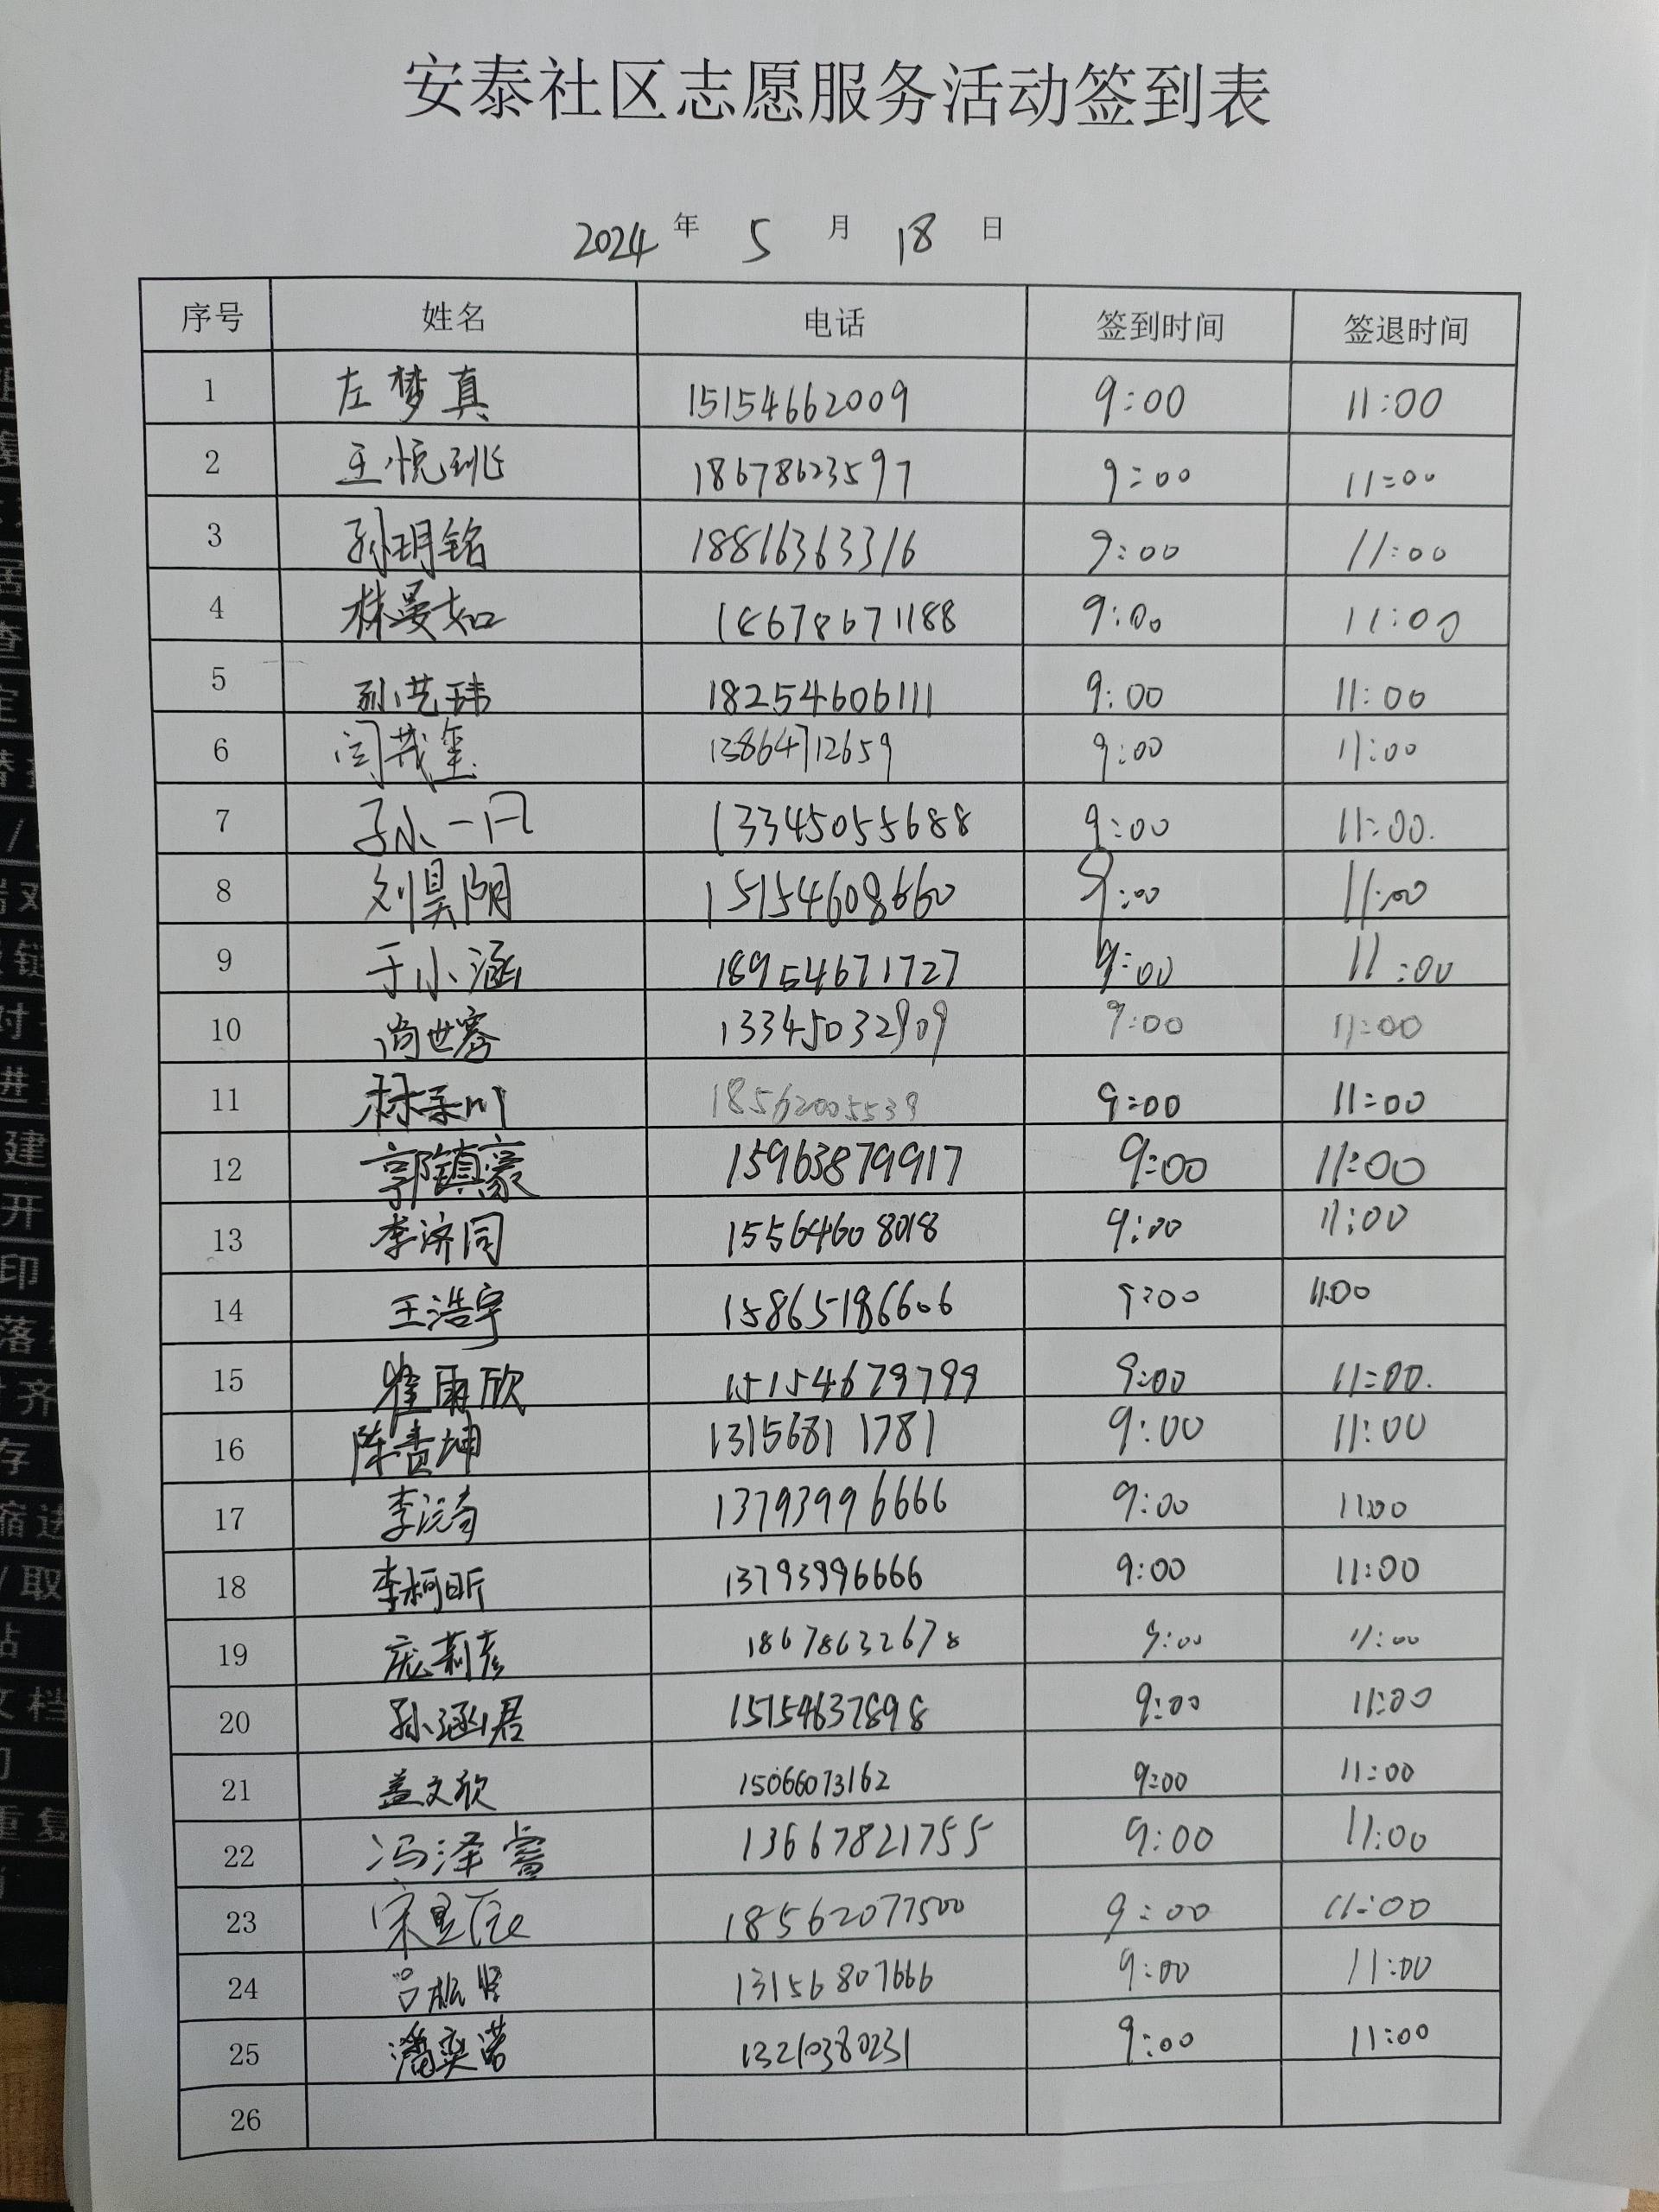 安泰社区志愿服务活动签到表
2024 年 5 月 18 日
序号 姓名 电话 签到时间 签退时间
1 左梦真 15154662009 9:00 11:00
2 王悦珧 18678623597 9:00 11:00
3 孙玥铭 18816363316 9:00 11:00
4 林曼如 18678671188 9:00 11:00
5 孙艺玮 18254606111 9:00 11:00
6 闫茂玺 13864712659 9:00 11:00
7 孙一凡 13345055688 9:00 11:00.
8 刘昊阳 15154608660 9:00 11:00
9 于小涵 18954671727 9:00 11:00
10 尚世骞 13345032909 9:00 11:00
11 林柔川 18562005539 9:00 11:00
12 郭镇豪 15963879917 9:00 11:00
13 李济同 15564608018 9:00 11:00
14 王浩宇 15865186606 9:00 11:00
15 雨欣 15154679799 9:00 11:00.
16 陈贵坤 13156811781 9:00 11:00
17 李 13793996666 9:00 11:00
18 李柯昕 13793996666 9:00 11:00
19 庞莉彦 18678632678 9:00 11:00
20 孙涵君 15154637898 9:00 11:00
21 盖文欣 15066073162 9:00 11:00
22 冯泽睿 13667821755 9:00 11:00
23 宋星辰 18562077500 9:00 11:00
24 吕 13156807666 9:00 11:00
25 潘奕诺 13210380231 9:00 11:00
26